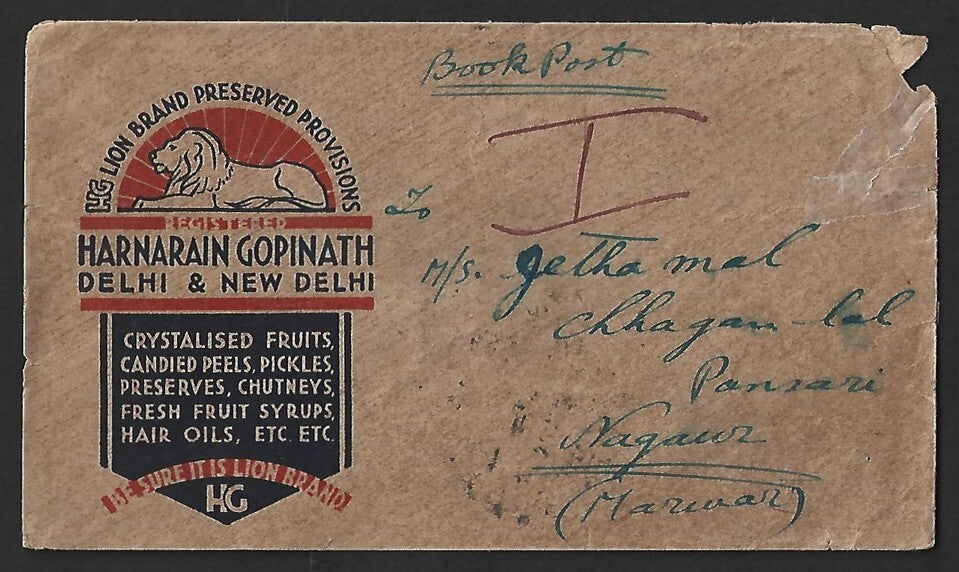 HG LION BRAND PRESERVED PROVISIONS
REGISTERED
HARNARAIN GOPINATH
DELHI & NEW DELHI
CRYSTALISED FRUITS,
CANDIED PEELS, PICKLES,
PRESERVES, CHUTNEYS,
FRESH FRUIT SYRUPS,
HAIR OILS, ETC. ETC.
BE SURE IT IS LION BRAND
HG
Book Post
I
To
M/S. Jetha mal
Chhagan-lal
Pansari
Nagaur
(Marwar)